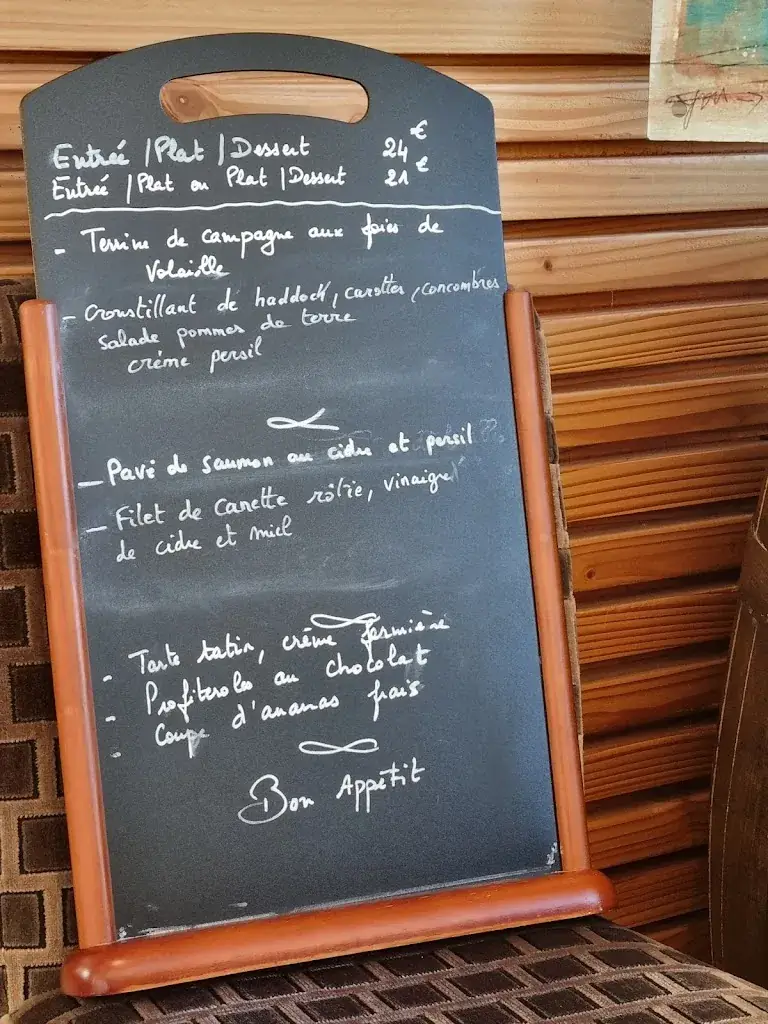 Entrée | Plat | Dessert 24€
Entrée | Plat ou Plat | Dessert 21€
- Terrine de campagne aux foies de
Volaille
- Croustillant de haddock, carottes, concombres
salade pommes de terre
crème persil
- Pavé de saumon au cidre et persil
- Filet de canette rôtie, vinaigre
de cidre et miel
- Tarte tatin, crème fermière
- Profiteroles au chocolat
- Coupe d'ananas frais
Bon Appétit